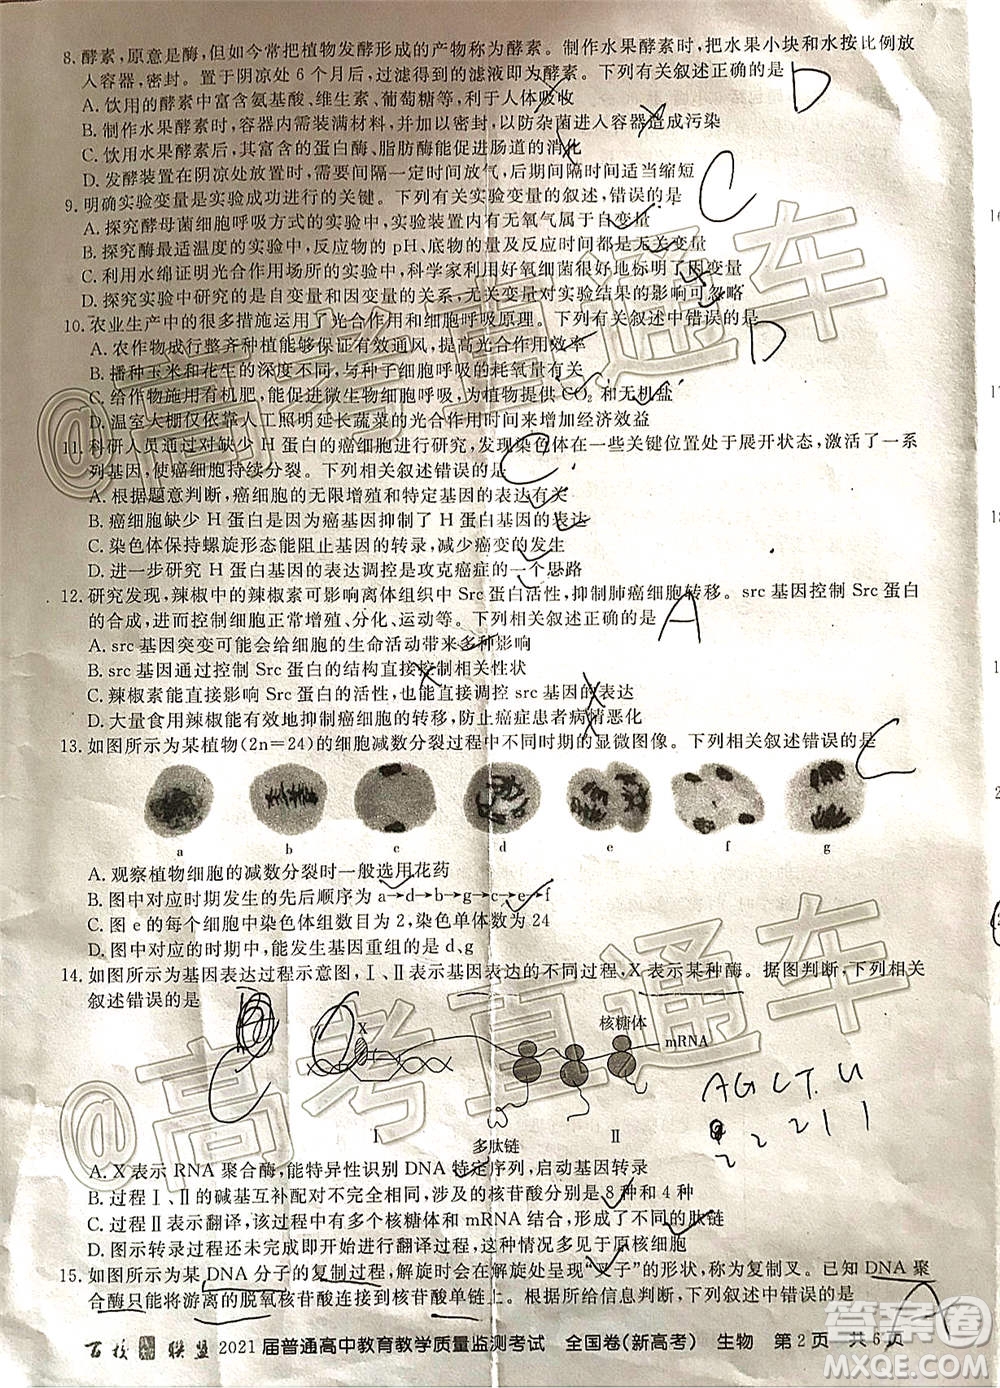 8. 酵素，原意是酶，但如今常把植物发酵形成的产物称为酵素。制作水果酵素时，把水果小块和水按比例放
入容器，密封。置于阴凉处 6 个月后，过滤得到的滤液即为酵素。下列有关叙述正确的是 D
A. 饮用的酵素中富含氨基酸、维生素、葡萄糖等，利于人体吸收
B. 制作水果酵素时，容器内需装满材料，并加以密封，以防杂菌进入容器造成污染
C. 饮用水果酵素后，其富含的蛋白酶、脂肪酶能促进肠道的消化
D. 发酵装置在阴凉处放置时，需要间隔一定时间放气，后期间隔时间适当缩短
9. 明确实验变量是实验成功进行的关键。下列有关实验变量的叙述，错误的是 C
A. 探究酵母菌细胞呼吸方式的实验中，实验装置内有无氧气属于自变量
B. 探究酶最适温度的实验中，反应物的 pH、底物的量等是无关变量
C. 利用水绵证明光合作用场所的实验中，科学家利用好氧细菌很好地标明了因变量
D. 探究实验中研究的是自变量和因变量的关系，无关变量对实验结果的影响可忽略
10. 农业生产中的很多措施运用了光合作用和细胞呼吸原理。下列有关叙述中错误的是 D
A. 农作物成行整齐种植能够保证有效通风，提高光合作用效率
B. 播种玉米和花生的深度不同，与种子细胞呼吸的耗氧量有关
C. 给作物施用有机肥，能促进微生物细胞呼吸，为植物提供 CO₂ 和无机盐
D. 温室大棚仅依靠人工照明延长蔬菜的光合作用时间来增加经济效益
11. 科研人员通过对缺少 H 蛋白的癌细胞进行研究，发现染色体在一些关键位置处于展开状态，激活了一系
列基因，使癌细胞持续分裂。下列相关叙述错误的是
A. 根据题意判断，癌细胞的无限增殖和特定基因的表达有关
B. 癌细胞缺少 H 蛋白是因为癌基因抑制了 H 蛋白基因的表达
C. 染色体保持螺旋形态会阻止基因的转录，减少癌变的发生
D. 进一步研究 H 蛋白的基因表达调控是攻克癌症的一个思路
12. 研究发现，辣椒中的辣椒素可影响离体组织中 Src 蛋白活性，抑制肺癌细胞转移。src 基因控制 Src 蛋白
的合成，进而控制细胞正常增殖、分化、运动等。下列相关叙述正确的是 A
A. src 基因突变可能会给细胞的生命活动带来多种影响
B. src 基因通过控制 Src 蛋白的结构直接控制相关性状
C. 辣椒素能直接影响 Src 蛋白的活性，也能直接调控 src 基因的表达
D. 大量食用辣椒能有效地抑制癌细胞的转移，防止癌症患者病情恶化
13. 如图所示为某植物(2n=24)的细胞减数分裂过程中不同时期的显微图像。下列相关叙述错误的是 C
a b c d e f g
A. 观察植物细胞的减数分裂时一般选用花药
B. 图中对应时期发生的先后顺序为 a→d→b→g→c→e→f
C. 图 e 的每个细胞中染色体组数目为 2，染色单体数为 24
D. 图中对应的时期中，能发生基因重组的是 d、g
14. 如图所示为基因表达过程示意图，Ⅰ、Ⅱ表示基因表达的不同过程，X 表示某种酶。据图判断，下列相关
叙述错误的是
C
X 核糖体 mRNA
AGCT U
2 2 2 1 1
Ⅰ 多肽链 Ⅱ
A. X 表示 RNA 聚合酶，能特异性识别 DNA 特定序列，启动基因转录
B. 过程Ⅰ、Ⅱ的碱基互补配对不完全相同，涉及的核苷酸分别是 8 种和 4 种
C. 过程Ⅱ表示翻译，该过程中多个核糖体和 mRNA 结合，形成了不同的肽链
D. 图示转录过程还未完成即开始进行翻译过程，该现象不可能发生在真核细胞
15. 如图所示为某 DNA 分子的复制过程，解旋时会在解旋处呈现“叉子”的形状，称为复制叉。已知 DNA 聚
合酶只能将游离的脱氧核苷酸连接到核苷酸单链上。根据图示所给信息，下列相关叙述错误的是 A
百校联盟 2021 届普通高中教育教学质量监测考试 全国卷(新高考) 生物 第 2 页 共 6 页
@高考直通车
@高考直通车